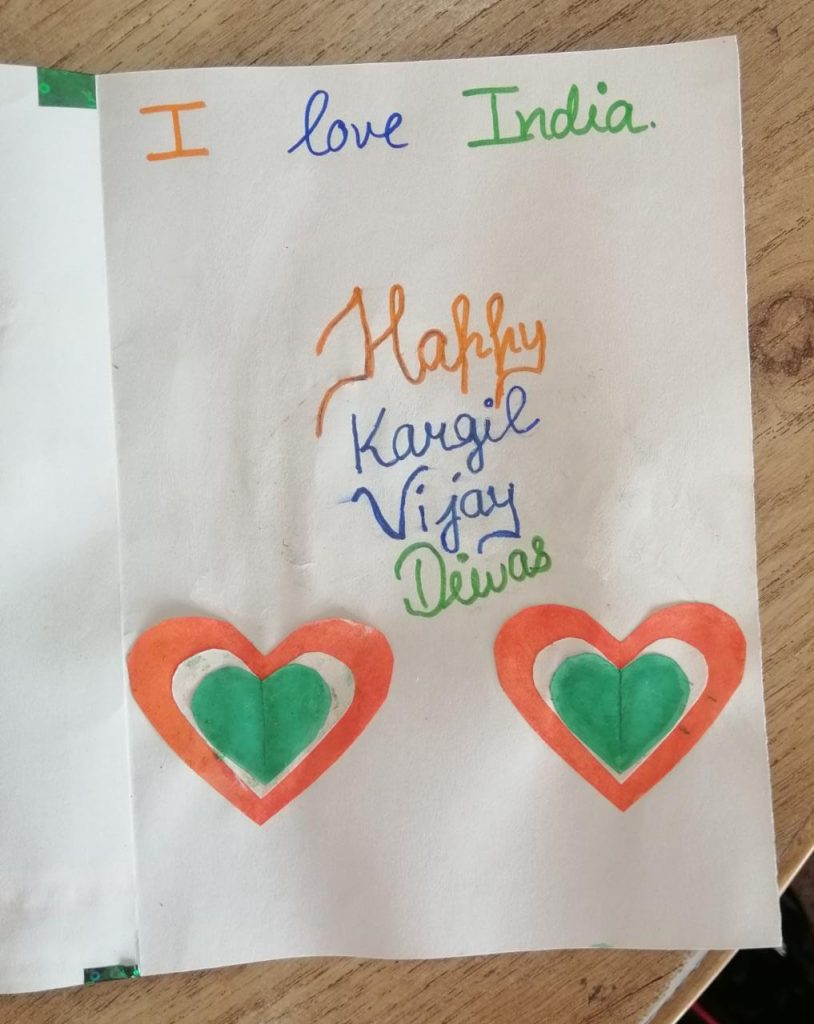 I love India.
Happy
Kargil
Vijay
Diwas